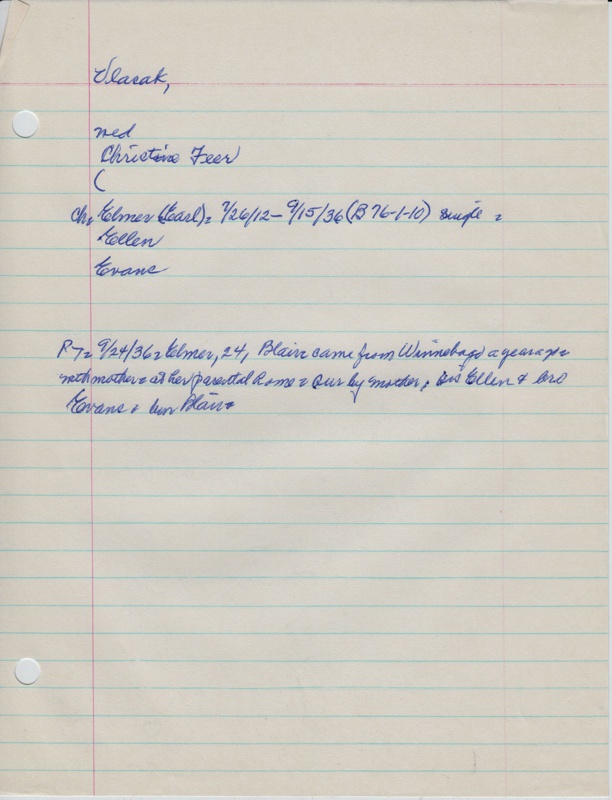 Vlasak,
med
Christine Feer
(
ch= Elmer (Earl)= 7/26/12- 9/15/36 (B 76-1-10) single =
Ellen
Evans
P7= 9/24/36= Elmer, 24, Blair= came from Winnebago a year ago=
with mother= at her parental home= sur by mother, sis Ellen & bro
Evans= bur Blair=